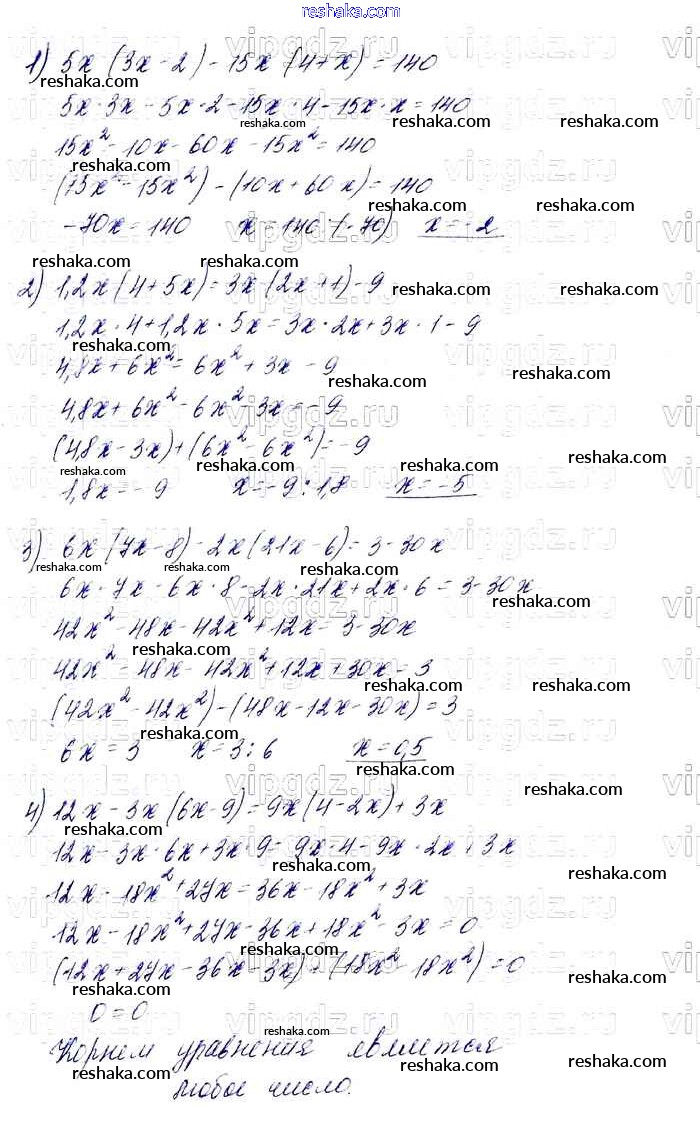 reshaka.com
1) 5x (3x - 2) - 15x (4 + x) = 140
5x · 3x - 5x · 2 - 15x · 4 - 15x · x = 140
15x² - 10x - 60x - 15x² = 140
(15x² - 15x²) - (10x + 60x) = 140
-70x = 140 x = 140 : (-70) x = -2
2) 1,2x (4 + 5x) = 3x (2x + 1) - 9
1,2x · 4 + 1,2x · 5x = 3x · 2x + 3x · 1 - 9
4,8x + 6x² = 6x² + 3x - 9
4,8x + 6x² - 6x² - 3x = -9
(4,8x - 3x) + (6x² - 6x²) = -9
1,8x = -9 x = -9 : 1,8 x = -5
3) 6x (7x - 8) - 2x (21x - 6) = 3 - 30x
6x · 7x - 6x · 8 - 2x · 21x + 2x · 6 = 3 - 30x
42x² - 48x - 42x² + 12x = 3 - 30x
42x² - 48x - 42x² + 12x + 30x = 3
(42x² - 42x²) - (48x - 12x - 30x) = 3
6x = 3 x = 3 : 6 x = 0,5
4) 12x - 3x (6x - 9) = 9x (4 - 2x) + 3x
12x - 3x · 6x + 3x · 9 = 9x · 4 - 9x · 2x + 3x
12x - 18x² + 27x = 36x - 18x² + 3x
12x - 18x² + 27x - 36x + 18x² - 3x = 0
(12x + 27x - 36x - 3x) - (18x² - 18x²) = 0
0 = 0
Корнем уравнения является
любое число.